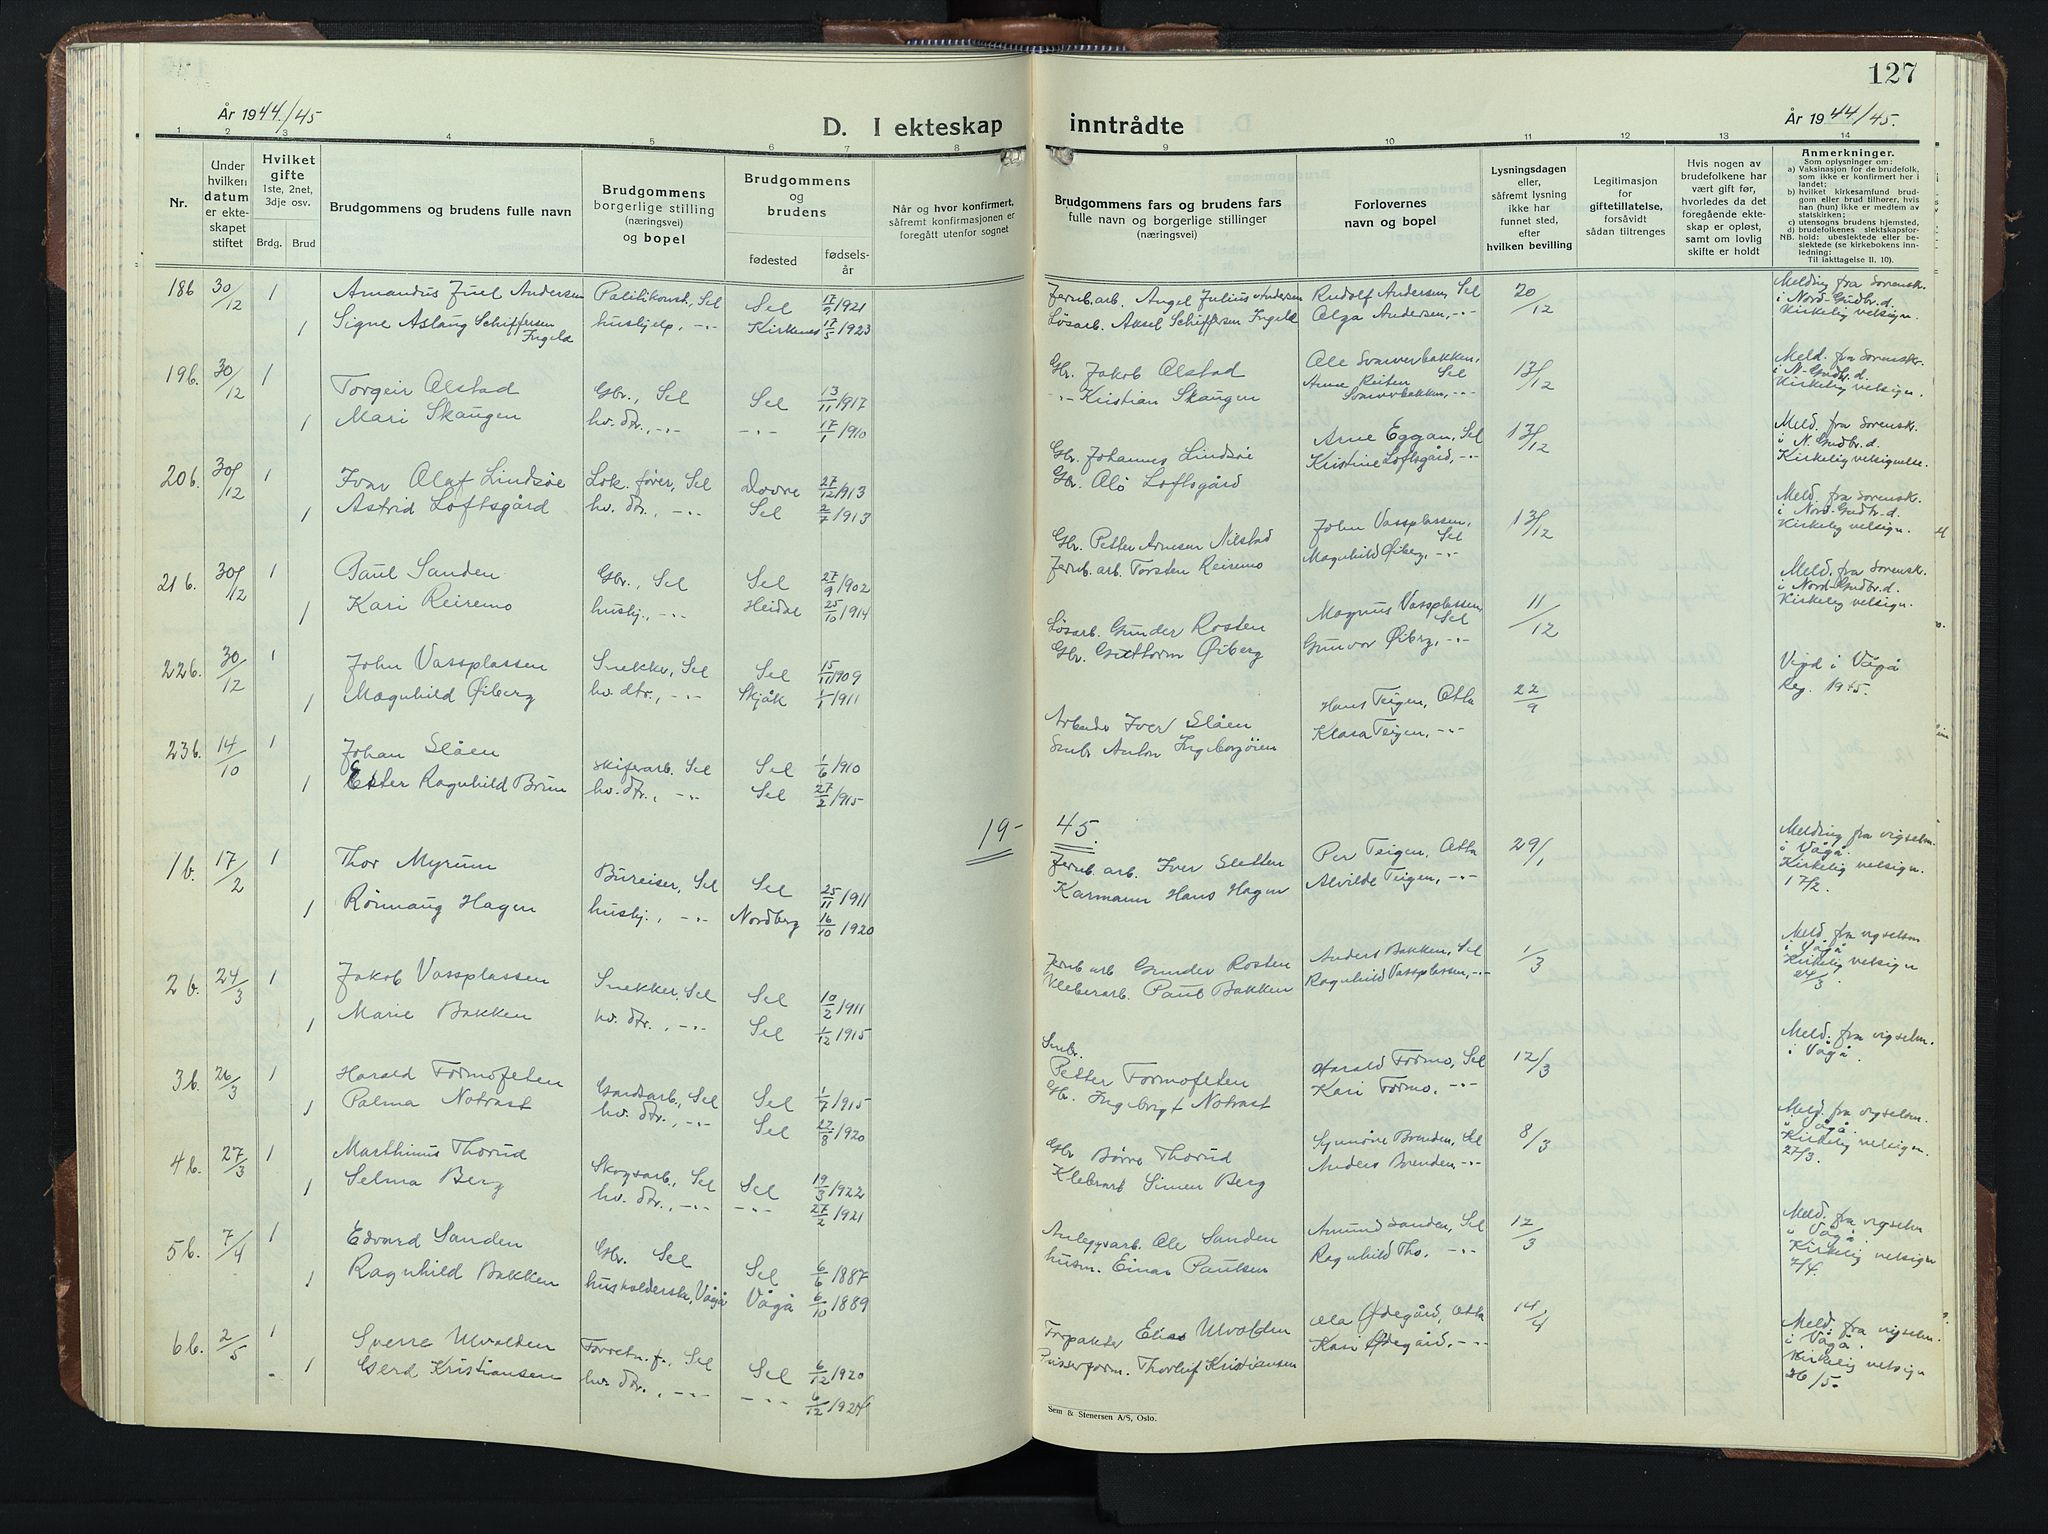 127
År 1944/45
D. I ekteskap inntrådte
År 1944/45.
1 2 3 4 5 6 7 8 9 10 11 12 13 14
Nr.
Under hvilken datum er ekteskapet stiftet
Hvilket gifte
1ste, 2net, 3dje osv.
Brdg. Brud
Brudgommens og brudens fulle navn
Brudgommens borgerlige stilling (næringsvei) og bopel
Brudgommens og brudens
fødested fødselsår
Når og hvor konfirmert, såfremt konfirmasjonen er foregått utenfor sognet
Brudgommens fars og brudens fars fulle navn og borgerlige stillinger (næringsvei)
Forlovernes navn og bopel
Lysningsdagen eller, såfremt lysning ikke har funnet sted, efter hvilken bevilling
Legitimasjon for giftetillatelse, forsåvidt sådan tiltrenges
Hvis nogen av brudefolkene har vært gift før, hvorledes da det foregående ekteskap er opløst, samt om lovlig skifte er holdt
Anmerkninger.
Som oplysninger om:
a) Vaksinasjon for de brudefolk, som ikke er konfirmert her i landet;
b) hvilket kirkesamfund brudgom eller brud tilhører, hvis han (hun) ikke er medlem av statskirken;
c) utensogns brudens hjemsted,
d) brudefolkenes slektskapsforhold: ubeslektede eller beslektede (se kirkebokens innledning:
NB.
Til iakttagelse II, 10).
18b 30/12 1 Amandus Juel Andersen Sel Sel 1921 Jernb.arb. Angel Julius Andersen Rudolf Andersen, Sel 20/12 Melding fra Sorensk. i Nord-Gudbr.d. Kirkelig velsign.
1 Signe Aslaug Schiffersen Ingeld hushjelp, -"- Kirkenes 17/5 1923 Løsarb. Aksel Schiffersen Ingeld Olga Andersen, -"-
19b. 30/12 1 Torgeir Olstad Gbr., Sel Sel 13/11 1917 Gbr. Jakob Olstad 13/12 Meld. fra Sorensk. i N-Gudbr.d. Kirkelig velsign.
1 Mari Skaugen hv. dtr., -"- -"- 17/1 1910 -"- Kristian Skaugen
20b. 30/12 1 Ivar Olaf Lindsøe Lok. fører, Sel Dovre 27/12 1913 Gbr. Johannes Lindsøe Arne Eggan, Sel 13/12 Meld. fra Sorensk. i N. Gudbr.d. Kirkelig velsignelse.
1 Astrid Loftsgård hv. dtr., -"- Sel 2/7 1913 Gbr. Ole Loftsgård Kristine Loftsgård, -"-
21b. 30/12 1 Paul Sanden Gbr., Sel Sel 27/9 1902 Gbr. Petter Arnesen Nilstad John Vassplassen, Sel 13/12 Meld. fra Sorensk. i Nord-Gudbr.d. Kirkelig velsign.
1 Kari Reiremo hushj., -"- Heidal 25/10 1914 Jernb.arb. Torsten Reiremo Magnhild Øiberg, -"-
22b. 30/12 1 John Vassplassen Snekker, Sel Sel 15/11 1909 Løsarb. Gunder Rosten Magnus Vassplassen, Sel 11/12 Meld. fra Sorensk. i Nord-Gudbr.d. Kirkelig velsign.
1 Magnhild Øiberg hv. dtr., -"- Skjåk 1/1 1911 Gbr. Guttorm Øiberg Gunvor Øiberg, -"-
23b. 14/10 1 Johan Slåen skiferarb. Sel Sel 1/6 1910 Arbeider Iver Slåen Hans Teigen, Otta 22/9 Vigd i Vågå Reg. 1945.
1 Ester Ragnhild Brun hv. dtr., -"- Sel 27/2 1915 Smbr. Anton Ingeborgøien Klara Teigen, -"-
19- 45.
1b. 17/2 1 Thor Myrum Bureiser, Sel Sel 25/11 1911 Jernb. arb. Iver Sletten Per Teigen, Otta 29/1 Melding fra vigselm. i Vågå. Kirkelig velsign. 17/2.
1 Rønnaug Hagen hushj., -"- Nordberg 16/10 1920 Karmann Hans Hagen Alvilde Teigen, -"-
2b. 24/3 1 Jakob Vassplassen Snekker, Sel Sel 10/2 1911 Jernb arb Gunder Rosten Anders Bakken, Sel 1/3 Meld. fra vigselsm i Vågå. Kirkelig velsign 24/3.
1 Marie Bakken hv. dtr., -"- Sel 1/12 1915 Kleberarb. Paul Bakken Ragnhild Vassplassen, -"-
3b. 26/3 1 Harald Formofeten Gardsarb., Sel Sel 1/7 1915 Smbr. Petter Formofeten Harald Formo, Sel 12/3 Meld. fra vigselm. i Vågå.
1 Palma Notrast hv. dtr., -"- Sel 22/8 1920 Gbr. Ingebrigt Notrast Kari Formo, -"-
4b. 27/3 1 Marthinus Thorud Skogsarb., Sel Sel 19/3 1922 Gbr Børre Thorud Synnøve Brenden, Sel 8/3 Meld. fra vigselsm. i Vågå. Kirkelig velsign. 27/3.
1 Selma Berg hv. dtr., -"- -"- 27/2 1921 Kleberarb Simen Berg Anders Brenden -"-
5b. 7/4 1 Edvard Sanden Gbr. Sel Sel 6/6 1887 Anleggsarb. Ole Sanden Amund Sanden, Sel 12/3 Meld. fra vigselm i Vågå. Kirkelig velsign 7/4.
1 Ragnhild Bakken husholderske, Vågå Vågå 6/10 1889 husm. Einar Paulsen Ragnhild Tho, -"-
6b. 2/5 1 Sverre Ulvolden Forretn.f., Sel Sel 6/12 1920 Forpakter Elias Ulvolden Ola Ødegård, Otta 14/4 Meld. fra vigselm. i Vågå. Kirkelig velsign 26/5.
1 Gerd Kristiansen hv. dtr., -"- -"- 6/12 1924 Thorleif Kristiansen Kari Ødegård, -"-
Sem & Stenersen A/S, Oslo.